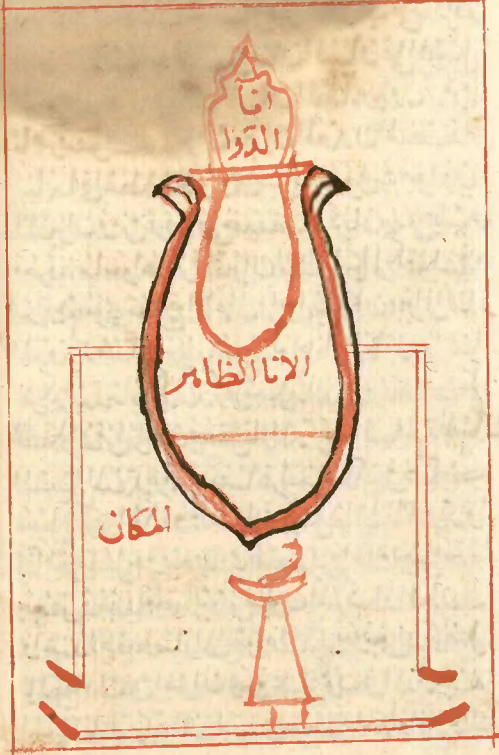 انا
الدوا
الانا الظاهر
المكان